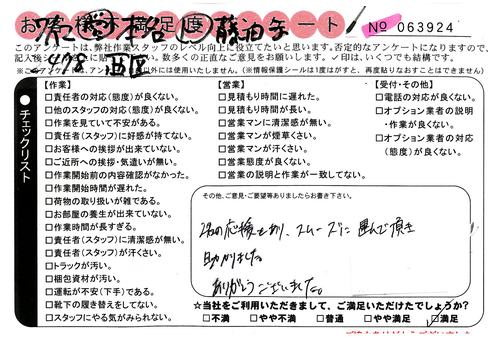 お客様不満足度アンケート
No 063924
このアンケートは、弊社作業スタッフのレベル向上に役立てたいと思います。否定的なアンケートになりますので、
数多くの正直なご意見をお願いします。✓印は、いくつでも結構です。
チェックリスト
【作業】
□責任者の対応(態度)が良くない。
□他のスタッフの対応(態度)が良くない。
□作業を見ていて不安がある。
□責任者(スタッフ)に好感が持てない。
□お客様への挨拶が出来ていない。
□ご近所への挨拶・気遣いが無い。
□作業開始前の内容確認がなかった。
□作業開始時間が遅れた。
□荷物の取り扱いが雑である。
□お部屋の養生が出来ていない。
□作業時間が長すぎる。
□責任者(スタッフ)に清潔感が無い。
□責任者(スタッフ)が汗くさい。
□トラックが汚い。
□梱包資材が汚い。
□運転が不安(下手)である。
□靴下の履き替えをしてない。
□スタッフにやる気がみられない。
【営業】
□見積もり時間に遅れた。
□見積もり時間が長い。
□営業マンに清潔感が無い。
□営業マンが煙草くさい。
□営業マンが汗くさい。
□営業態度が良くない。
□営業の説明と作業が一致してない。
【受付・その他】
□電話の対応が良くない。
□オプション業者の説明
・作業が良くない。
□オプション業者の対応
(態度)が良くない。
その他、ご意見・ご要望等ありましたらお書き下さい。
2名の応援もあり、スムーズに運んで頂き
助かりました。
ありがとうございました。
☆当社をご利用いただきまして、ご満足いただけたでしょうか?
□不満 □やや不満 □普通 □やや満足 ☑満足